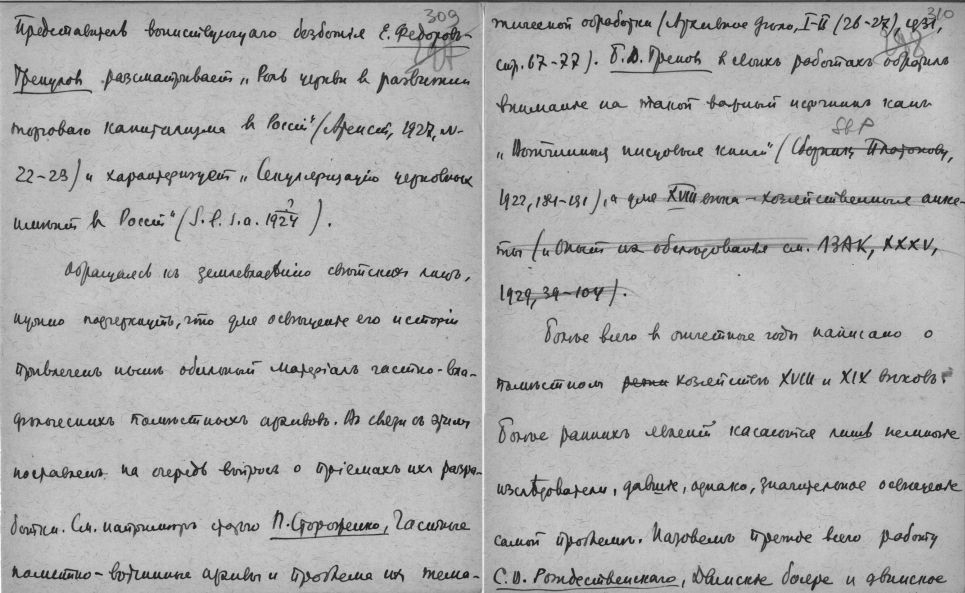 309
Представитель воинствующаго безбожія Е. Федоров-
Грекулов разсматривает „Роль церкви в развитии
торговаго капитализма в России“ (Атеист, 1927, N-
22-23) и характеризует „Секуляризацію церковных
имѣній в России“ (S. l. s. a. 1924 ? ).
Обращаясь къ землевладѣнію свѣтских лицъ,
нужно подчеркнуть, что для освѣщенія его исторіи
привлеченъ нынѣ обильный матеріалъ частно-вла-
дѣльческихъ помѣстныхъ архивовъ. Въ связи съ этим
поставленъ на очередь вопросъ о пріемахъ ихъ разра-
ботки. См. напримѣръ статью П. Стороженко, Частные
поместно-вотчинные архивы и проблема их тема-
310
тической обработки (Архивное дѣло, I-II (26-27), 1931,
стр. 67-77). Б. Д. Греков в своихъ работахъ обратилъ
вниманіе на такой важный источникъ какъ
„Вотчинныя писцовыя книги“ (Сборникъ Платонову,
1922, 184-191), а для XVIII вѣка - хозяйственныя анке-
ты (и опыт их обслѣдованія см. ЛЗАК, XXXV,
1929, 39-104).
Болѣе всего в отчетные годы написано о
помѣстномъ хозяйствѣ XVIII и XIX вѣковъ.
Болѣе раннихъ явленій касаются лишь немногіе
изслѣдователи, давшіе, однако, значительное освѣщеніе
самой проблемы. Назовемъ прежде всего работу
С. В. Рождественскаго, Двинскіе бояре и двинское